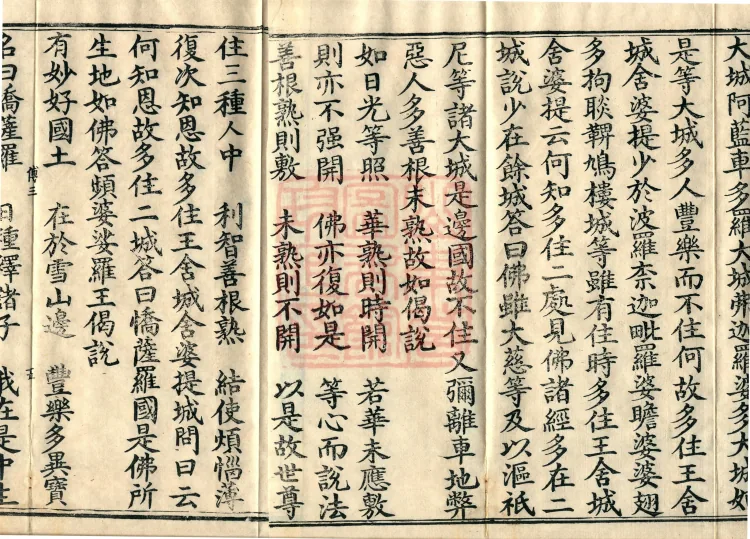 大城阿藍車多羅大城弗迦羅婆多大城如
是等大城多人豐樂而不住何故多住王舍
城舍婆提少於波羅柰迦毗羅婆瞻婆婆翅
多拘睒鞞鳩樓城等雖有住時多住王舍城
舍婆提云何知多住二處見佛諸經多在二
城說少在餘城答曰佛雖大慈等及以漚祇
尼等諸大城是邊國故不住又彌離車地弊
惡人多善根未熟故如偈說
如日光等照 華熟則時開 若華未應敷
則亦不强開 佛亦復如是 等心而說法
善根熟則敷 未熟則不開 以是故世尊
住三種人中 利智善根熟 結使煩惱薄
復次知恩故多住王舍城舍婆提城問曰云
何知恩故多住二城答曰憍薩羅國是佛所
生地如佛答頻婆娑羅王偈說
有妙好國土 在於雪山邊 豐樂多異寶
名曰憍薩羅 日種釋諸子 我在是中生